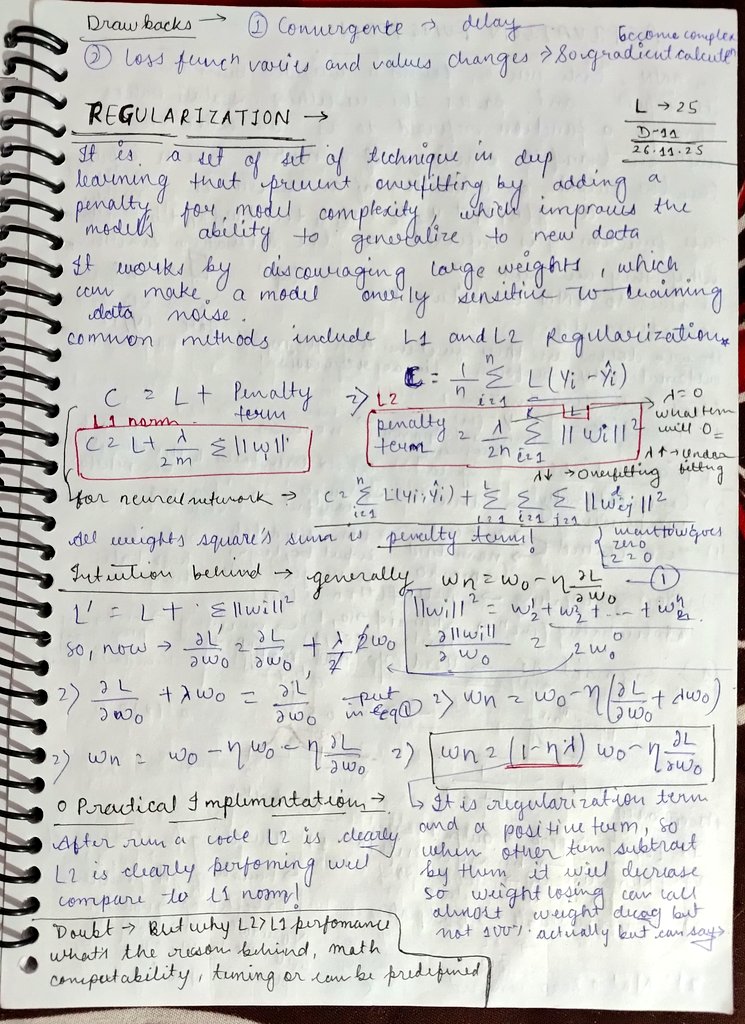 Drawbacks → ① Convergence → delay
② Loss funcn varies and values changes → So gradient calculaten become complex
L → 25
D-11
26.11.25
REGULARIZATION →
It is a set of set of technique in deep
learning that prevent overfitting by adding a
penalty for model complexity, which improves the
model's ability to generalize to new data
It works by discouraging large weights, which
can make a model overly sensitive to training
data noise.
common methods include L1 and L2 Regularization*
C = L + Penalty term
⇒ C = 1/n Σ i=1 n L(Yi - Ŷi)
L1 norm
C = L + λ/2n Σ ||w||'
L2
penalty term = λ/2n Σ i=1 k ||wi||²
λ = 0
what term will 0
λ↑ → Under fitting
λ↓ → Overfitting
for neural network → C = Σ i=1 n L(yi, ŷi) + Σ Σ i=1 Σ j=1 ||wij||²
All weights square's sum is penalty term!
zero
2 = 0
Intuition behind → generally wn = wo - η ∂L/∂wo — ①
L' = L + Σ||wi||²
||wi||² = w1² + w2² + --- + wn²
so, now → ∂L'/∂wo = ∂L/∂wo + λ/2 2wo
∂||wi||/∂wo = 2wo
⇒ ∂L/∂wo + λwo = ∂L/∂wo put in eq ① ⇒ wn = wo - η(∂L/∂wo + λwo)
⇒ wn = wo - ηwo - η ∂L/∂wo ⇒ wn = (1 - ηλ) wo - η ∂L/∂wo
○ Practical Implementation →
After run a code L2 is clearly
L2 is clearly perfoming well
compare to L1 norm!
↳ It is regularization term
and a positive term, so
when other term subtract
by them it will decrease
so weight losing can call
almost weight decay but
not 100% actually but can say→
Doubt → But why L2>L1 perfomance
what's the reason behind, math
computability, tuning or can be predefined